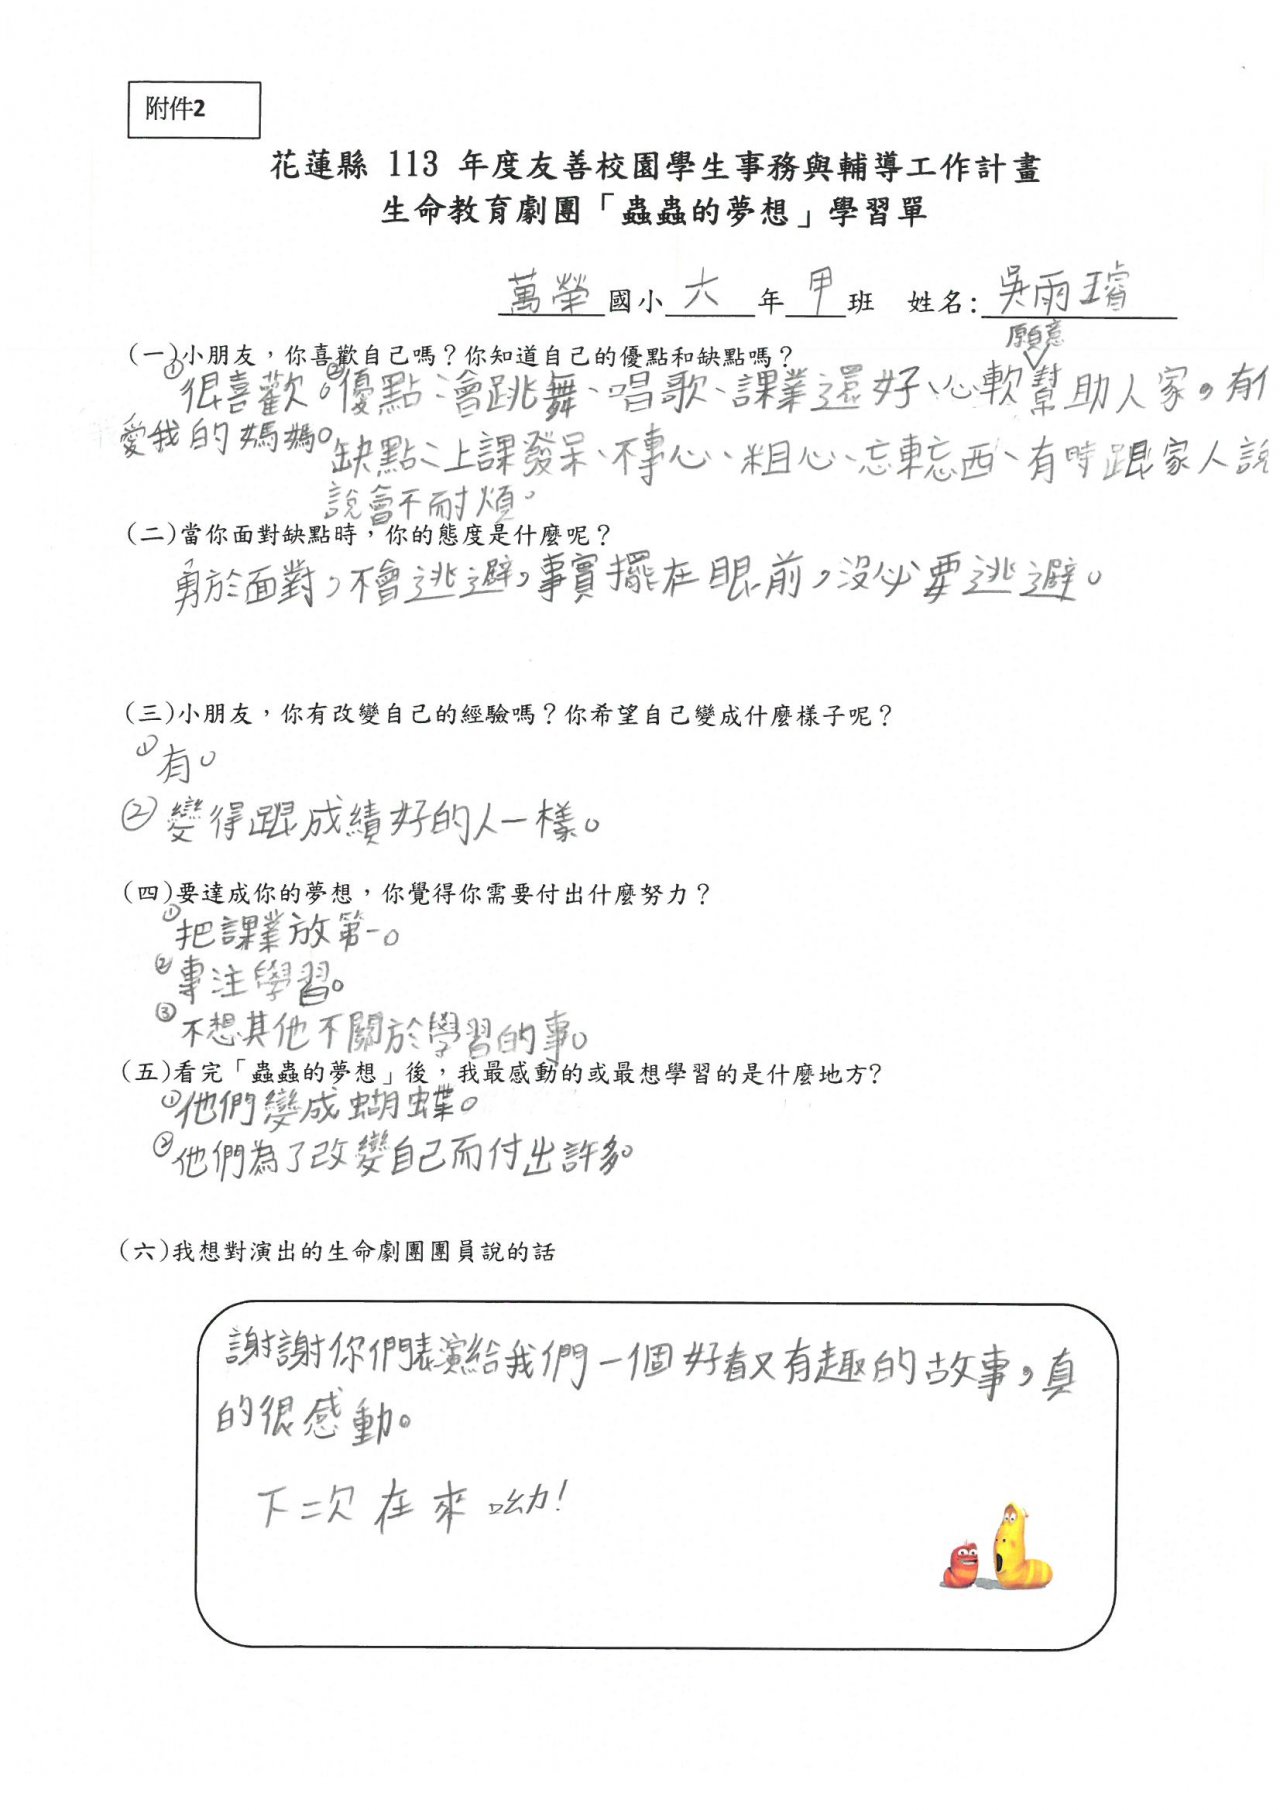 附件2
花蓮縣 113 年度友善校園學生事務與輔導工作計畫
生命教育劇團「蟲蟲的夢想」學習單
萬榮國小六年甲班 姓名:吳雨璿
(一)小朋友，你喜歡自己嗎？你知道自己的優點和缺點嗎？
願意
①很喜歡。②優點：會跳舞、唱歌、課業還好、心軟幫助人家，有
愛我的媽媽。
缺點：上課發呆、不專心、粗心、忘東忘西、有時跟家人說
說會不耐煩。
(二)當你面對缺點時，你的態度是什麼呢？
勇於面對，不會逃避，事實擺在眼前，沒必要逃避。
(三)小朋友，你有改變自己的經驗嗎？你希望自己變成什麼樣子呢？
①有。
②變得跟成績好的人一樣。
(四)要達成你的夢想，你覺得你需要付出什麼努力？
①把課業放第一。
②專注學習。
③不想其他不關於學習的事。
(五)看完「蟲蟲的夢想」後，我最感動的或最想學習的是什麼地方?
①他們變成蝴蝶。
②他們為了改變自己而付出許多。
(六)我想對演出的生命劇團團員說的話
謝謝你們表演給我們一個好看又有趣的故事，真
的很感動。
下二次在來呦!